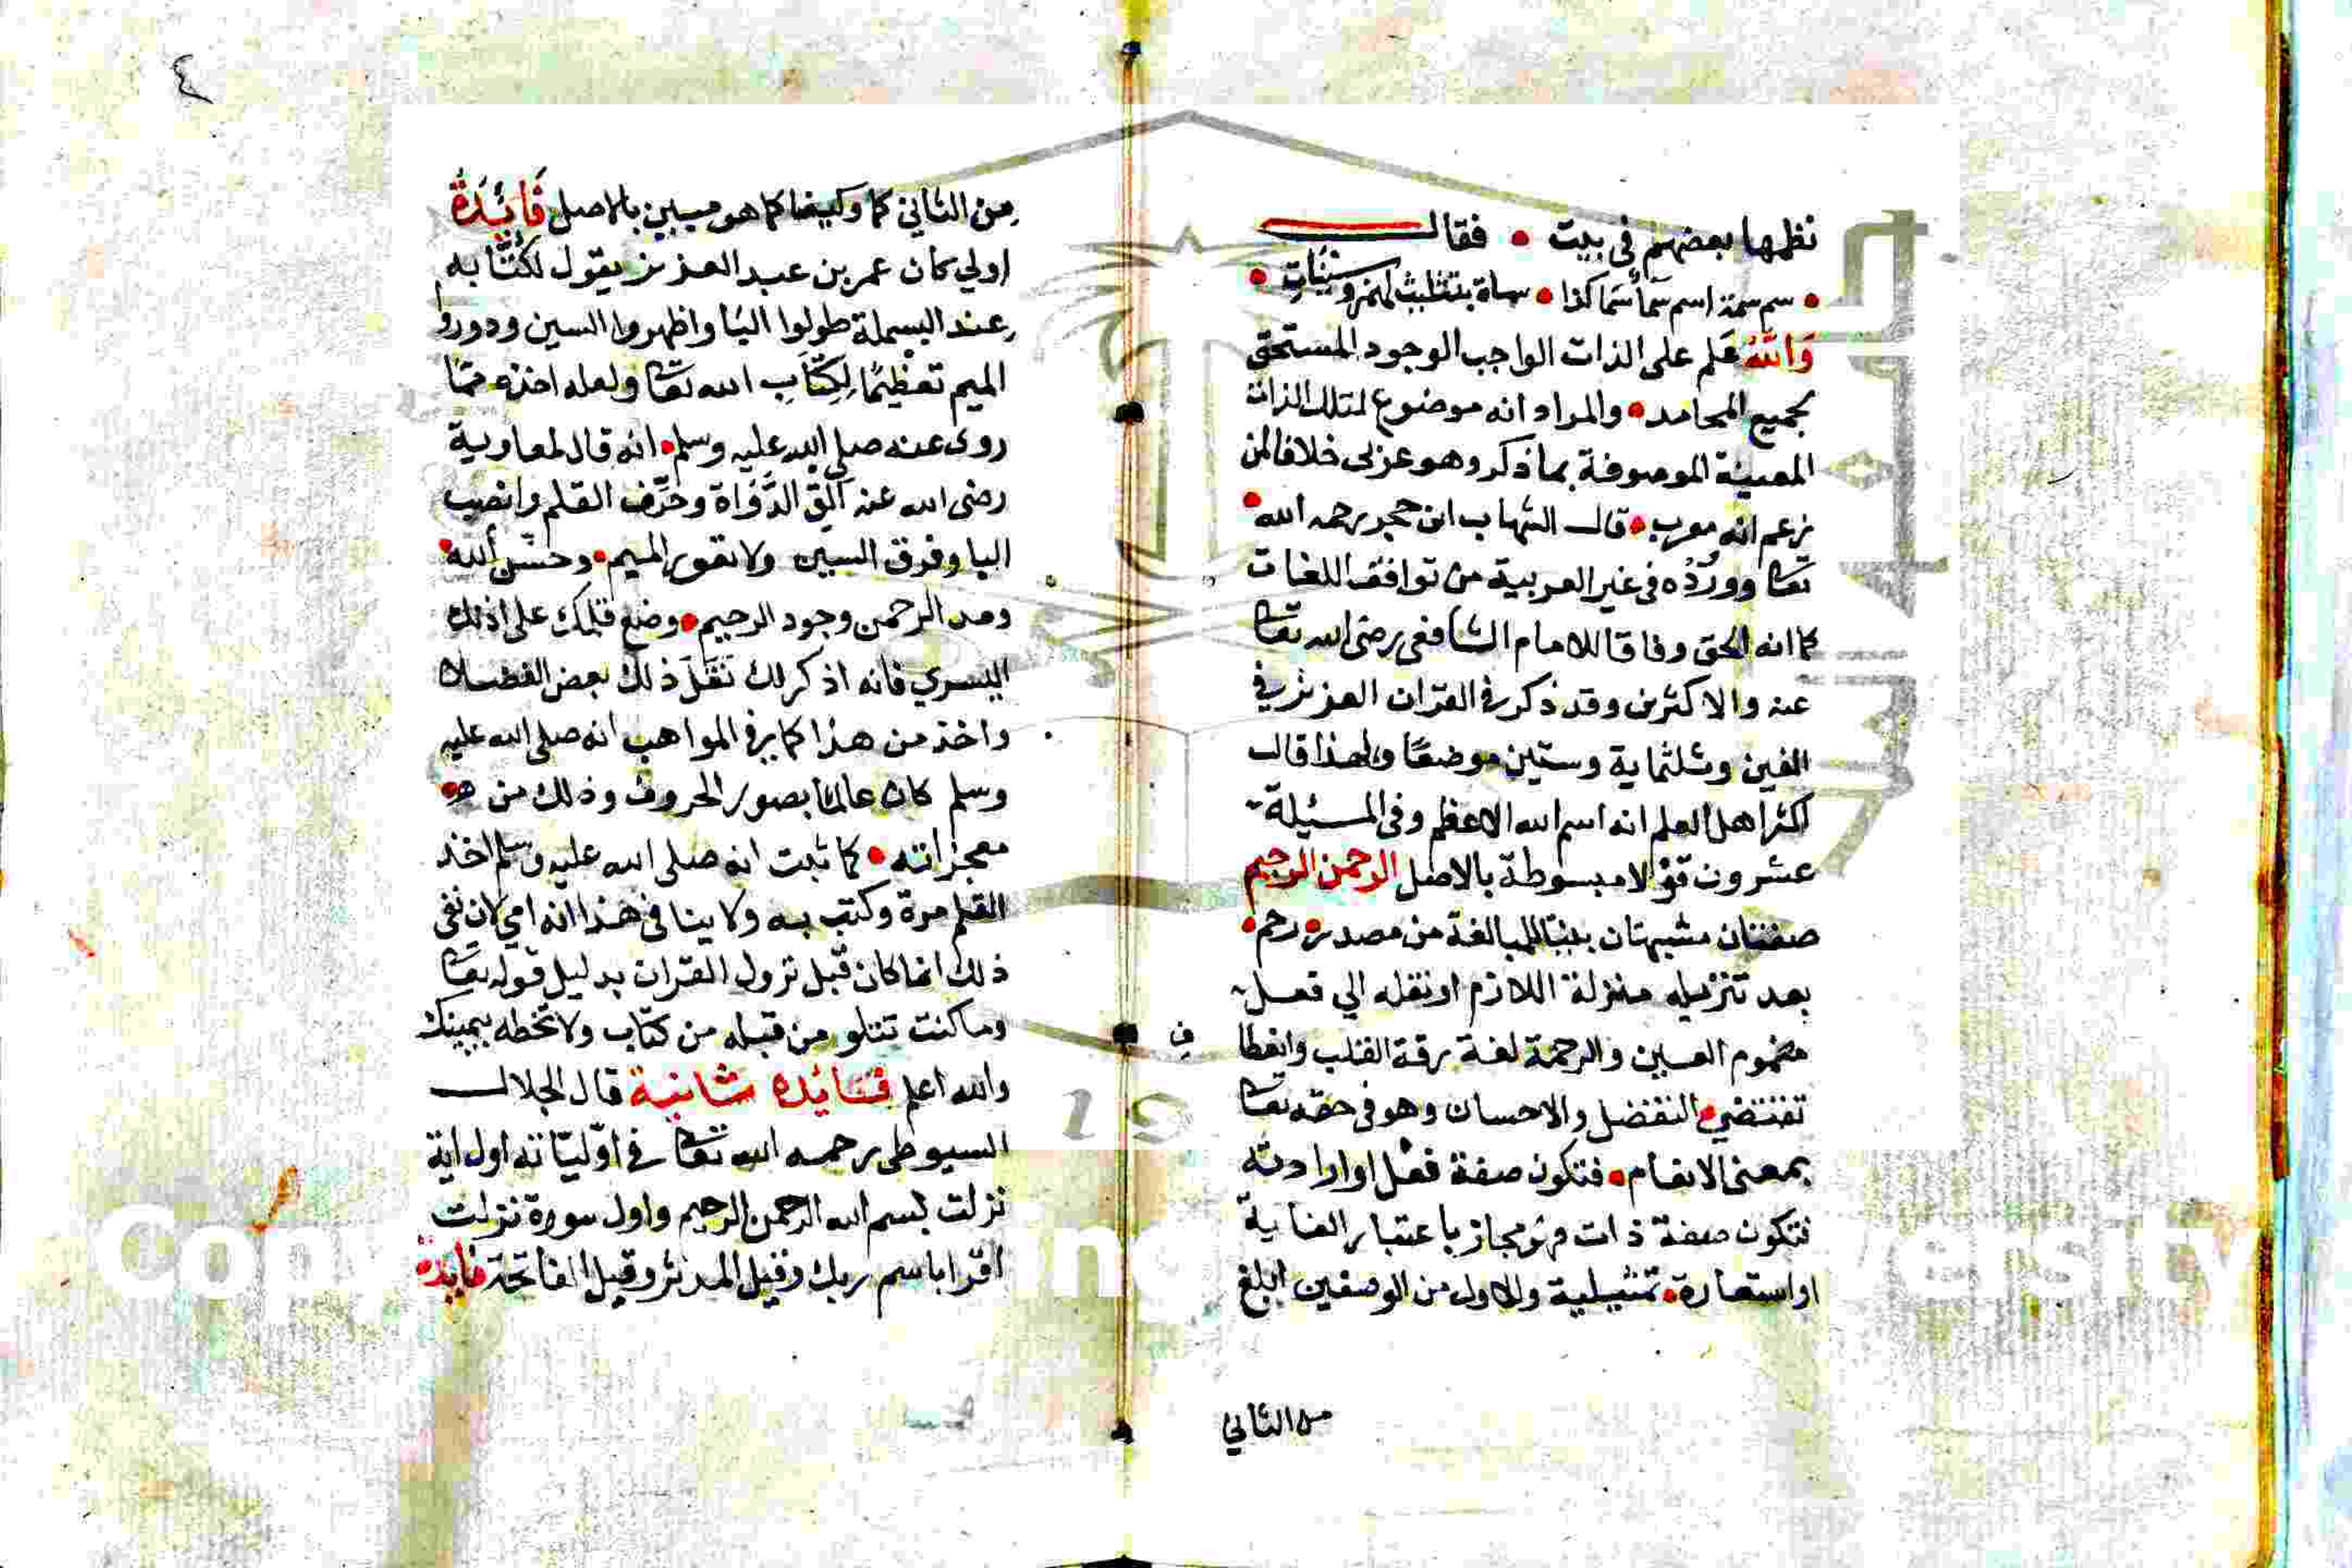 نظمها بعضهم في بيت • فقال
• سم سمة اسم سما سما كذا • سماة بتثليث
والله علم على الذات الواجب الوجود المستحق
لجميع المحامد • والمراد انه موضوع لتلك الذات
المعينة الموصوفة بما ذكر وهو عربي خلافا لمن
زعم انه معرب • قال الشهاب ابن حجر رحمه الله •
تعا ووروده في غير العربية من توافق اللغات
كما انه الحق وفاقا للامام الشافعي رضى الله تعا
عنه والاكثرين وقد ذكر في القران العزيز في
الفين وثلثماية وستين موضعا ولهذا قال
اكثر اهل العلم انه اسم الله الاعظم وفى المسئيلة
عشرون قولا مبسوطة بالاصل الرحمن الرحيم
صفتان مشبهتان بنيتا للمبالغة من مصدر • رحم •
بعد تنزيله منزلة اللازم او نقله الي فعل
مضموم العين والرحمة لغة رقة القلب وانعطا
ف
تقتضي • التفضل والاحسان وهو في حقه تعا
بمعنى الانعام • فتكون صفة فعل او ارادته
فتكون صفة ذات فهو مجاز باعتبار الغاية
او استعارة • تمثيلية والاول من الوصفين ابلغ
من الثاني
٤
من الثاني كما وكيفا كما هو مبين بالاصل فَائِدَةٌ
اولي كان عمر بن عبد العزيز يقول لكُتَّابه
عند البسملة طولوا البا واظهروا السين ودوروا
الميم تعظيمًا لِكِتَابِ الله تعا ولعله اخذه مما
روى عنه صلى الله عليه وسلم • انه قال لمعاوية
رضى الله عنه ألق الدَّوَاة وحَرِّف القلم وانصب
البا وفرق السين ولا تعور الميم • وحسن الله •
ومد الرحمن وجود الرحيم • وضع قلمك على اذنك
اليسري فانه اذكر لك نقل ذلك بعض الفضلا
واخذ من هذا كما في المواهب انه صلى الله عليه
وسلم كان عالما بصور الحروف وذلك من
معجزاته • كما ثبت انه صلى الله عليه وسلم اخذ
القلم مرة وكتب به ولا ينافى هذا انه امي لان نفى
ذلك انما كان قبل نزول القران بدليل قوله تعا
وما كنت تتلو من قبله من كتاب ولا تخطه بيمينك
والله اعلم فائده ثانية قال الجلال
السيوطى رحمه الله تعا في اوّليّاته اول اية
نزلت بسم الله الرحمن الرحيم واول سورة نزلت
اقرا باسم ربك وقيل المدثر وقيل الفاتحة فايدة